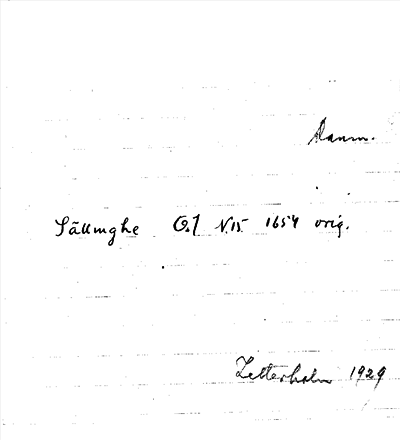 Sällinghe O.J N.15 1654 orig.
Zetterholm 1929